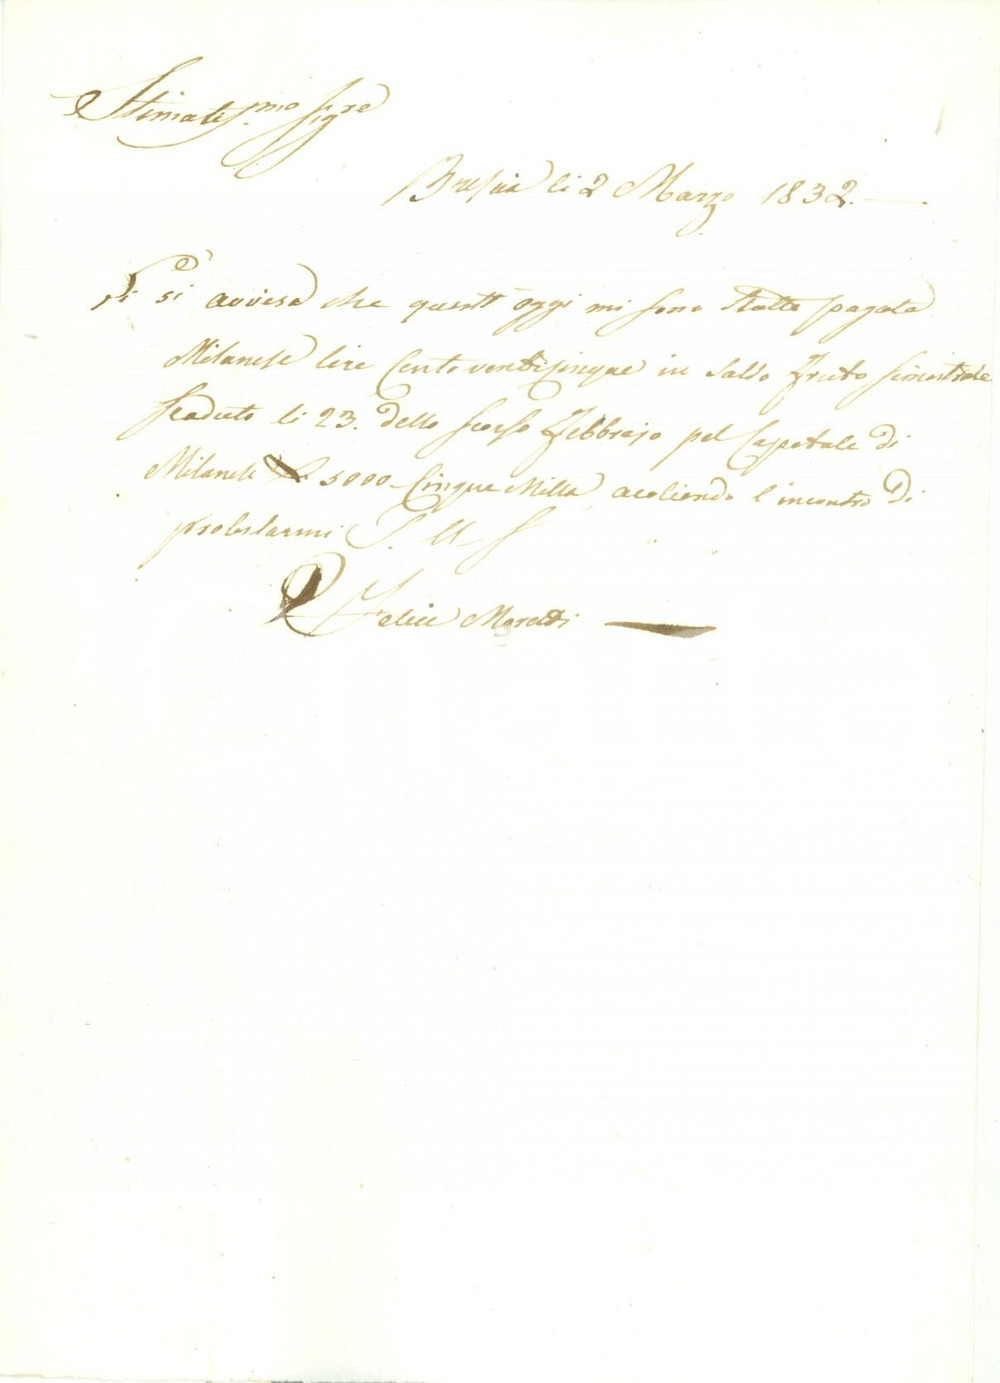 Stimatis.mo Sig.re
Brescia li 2 Marzo 1832.
si avvisa che quest oggi mi sono state pagate
Milanese lire Cento venticinque in saldo fruto semestrale
scaduto li 23. dello scorso Febbrajo pel Capitale di
Milanesi L. 5000 Cinque Milla, acoliendo l'incontro di
protestarmi
Felice Moretti